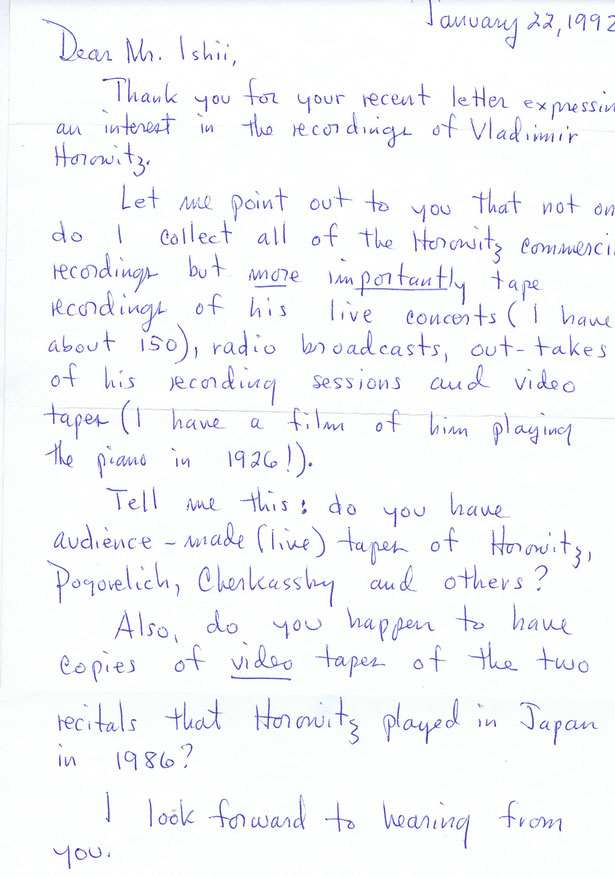 January 22, 1992
Dear Mr. Ishii,
Thank you for your recent letter expressin
an interest in the recordings of Vladimir
Horowitz.
Let me point out to you that not on
do I collect all of the Horowitz commerci
recordings but more importantly tape
recordings of his live concerts (I have
about 150), radio broadcasts, out-takes
of his recording sessions and video
tapes (I have a film of him playing
the piano in 1926!).
Tell me this: do you have
audience-made (live) tapes of Horowitz,
Pogorelich, Cherkassky and others?
Also, do you happen to have
copies of video tapes of the two
recitals that Horowitz played in Japan
in 1986?
I look forward to hearing from
you.